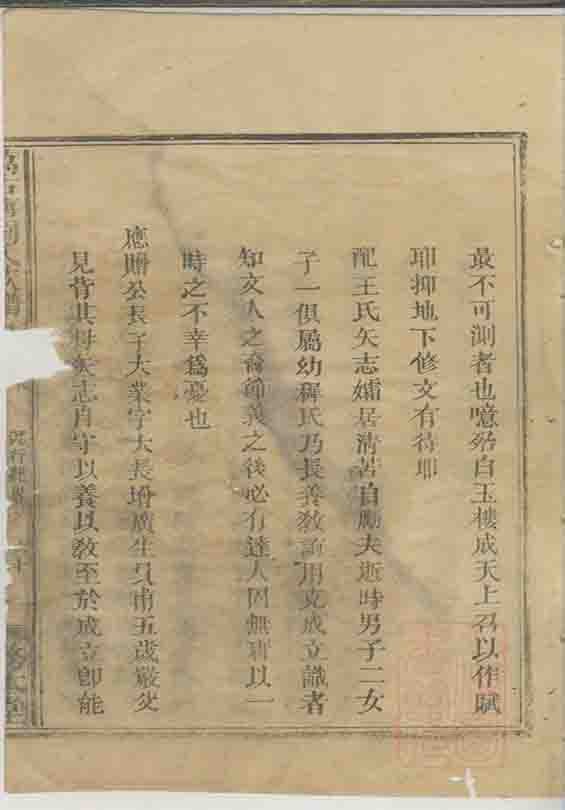 最不可測者也噫殆白玉樓成天上召以作賦
耶抑地下修文有待耶
配王氏矢志孀居清苦自勵夫逝時男子二女
子一俱屬幼穉氏乃長養教誨用克成立識者
知文人之裔節義之後必有達人因無事以一
時之不幸爲憂也
應贈公長子大業字大長增廣生員甫五歲嚴父
見背其母矢志自守以養以教至於成立卽能
氏族譜